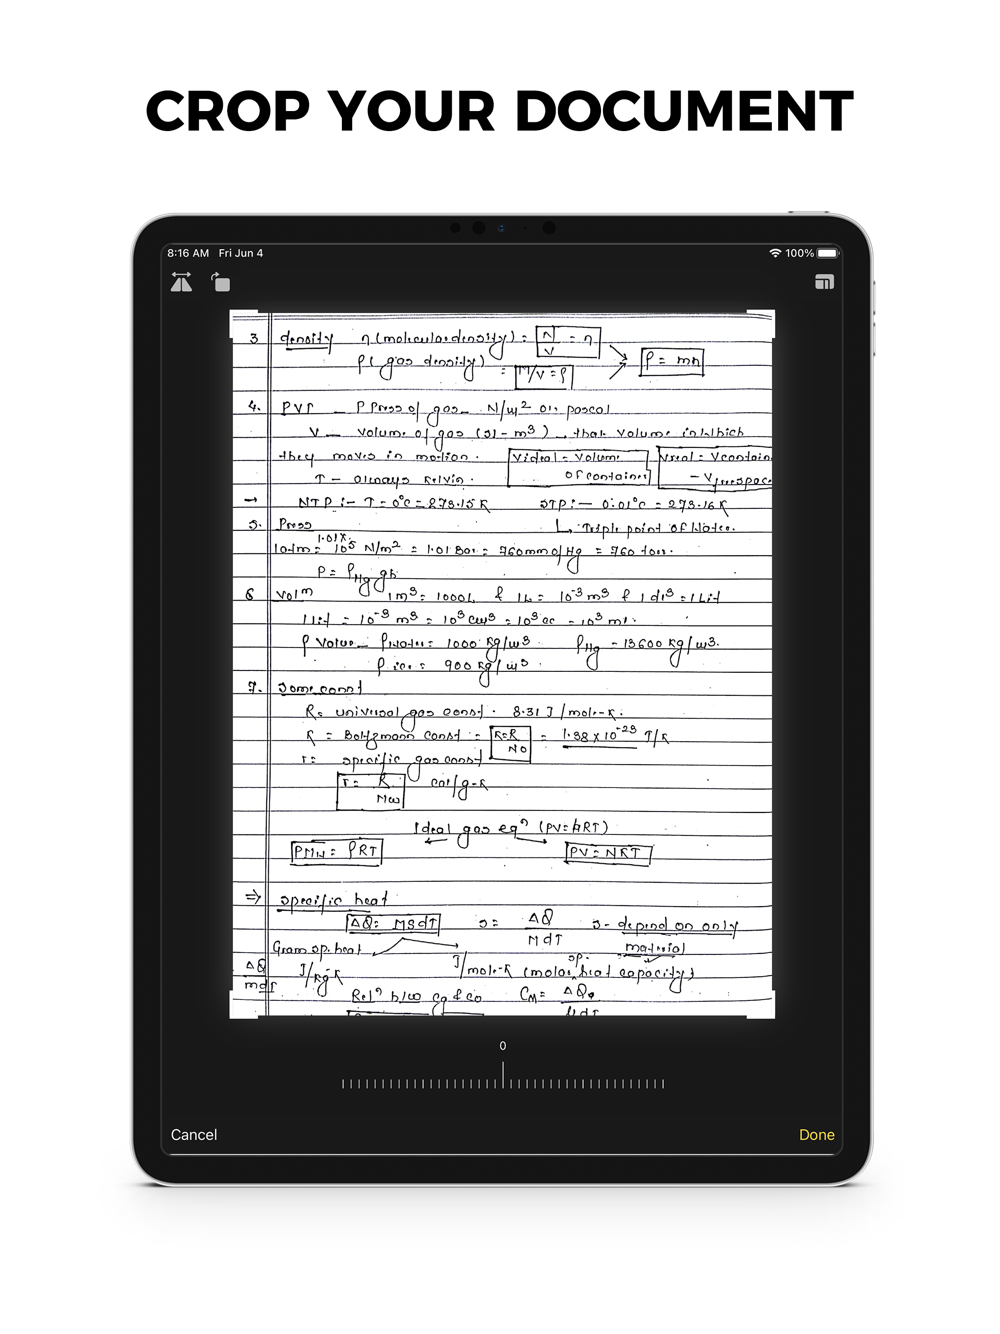 CROP YOUR DOCUMENT
8:16 AM Fri Jun 4
100%
3 density η (molecular density) = N/V = η
ρ (gas density) = M/V = ρ
ρ = mη
4. PVT - P Press of gas - N/m² or pascal
V - volume of gas (SI - m³) → that volume in which
they moves in motion.
Videal = Volume of container
Vreal = Vcontain - Vfreespace
T - always kelvin.
→ NTP :- T = 0°C = 273.15 K STP :- 0.01°C = 273.16 K
5. Press ↳ Triple point of Water.
1atm = 1.01 x 10⁵ N/m² = 1.01 Bar = 760mm of Hg = 760 torr.
P = ρHg gh
6 Volm 1m³ = 1000L & 1L = 10⁻³ m³ & 1 di³ = 1 Lit
1 Lit = 10⁻³ m³ = 10³ cm³ = 10³ cc = 10³ ml.
ρ Value - ρWater = 1000 kg/m³ ρHg - 13600 kg/m³.
ρice = 900 kg/m³.
7. Some const
R = universal gas const. 8.31 J/mole-K.
K = Boltzmann const = K = R/N0 = 1.38 x 10⁻²³ J/K
r = specific gas const
r = R/Mw cal/g-K
Ideal gas eqn (PV = nRT)
PMw = ρRT PV = NKT
⇒ specific heat
ΔQ = MSdT s = ΔQ/MdT s - depend on only material
Gram sp. heat
ΔQ/mdT J/kg-K J/mole-K (molar sp. heat capacity)
Reln b/w cg & co CM = ΔQ/
0
Cancel Done